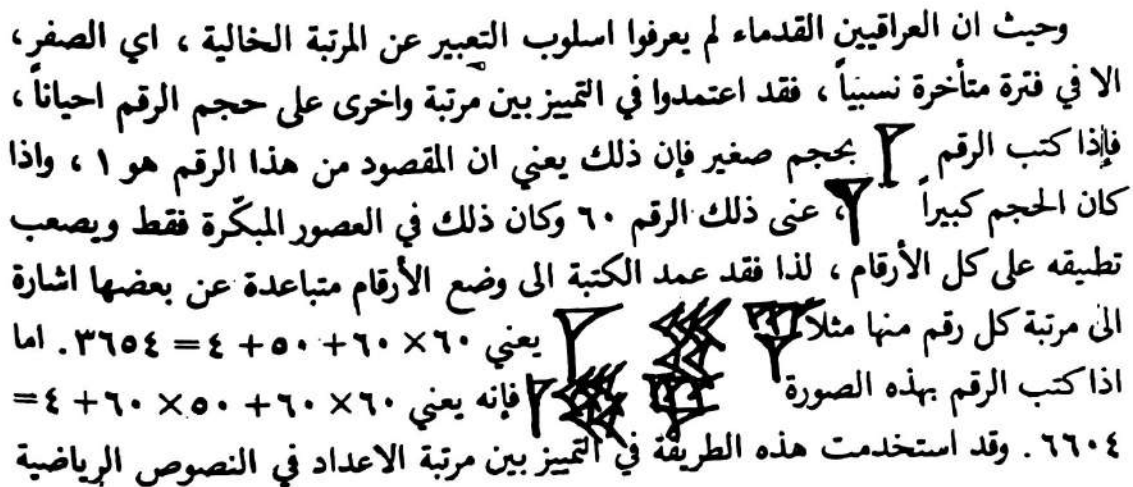 وحيث ان العراقيين القدماء لم يعرفوا اسلوب التعبير عن المرتبة الخالية ، اي الصفر ،
الا في فترة متأخرة نسبياً ، فقد اعتمدوا في التمييز بين مرتبة واخرى على حجم الرقم احياناً ،
فإذا كتب الرقم 𒁹 بحجم صغير فإن ذلك يعني ان المقصود من هذا الرقم هو ١ ، واذا
كان الحجم كبيراً 𒁹 ، عنى ذلك الرقم ٦٠ وكان ذلك في العصور المبكّرة فقط ويصعب
تطبيقه على كل الأرقام ، لذا فقد عمد الكتبة الى وضع الأرقام متباعدة عن بعضها اشارة
الى مرتبة كل رقم منها مثلا 𒁹 𒐐 𒐼 يعني ٦٠×٦٠ + ٥٠ + ٤ = ٣٦٥٤ . اما
اذا كتب الرقم بهذه الصورة 𒁹𒐐 𒐼 فإنه يعني ٦٠×٦٠ + ٥٠×٦٠ + ٤ =
٦٦٠٤ . وقد استخدمت هذه الطريقة في التمييز بين مرتبة الاعداد في النصوص الرياضية